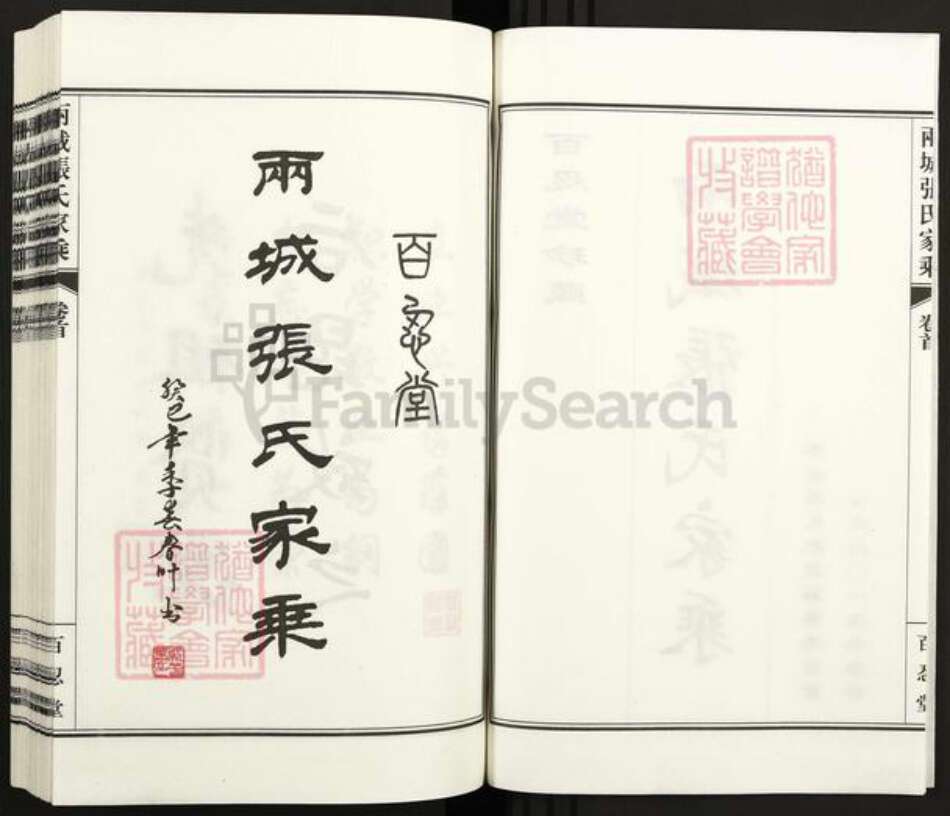 兩城張氏家乘
卷首
百忍堂
猶他家
譜學會
收藏
百忍堂
兩城張氏家乘
癸巳年季春春叶书
猶他家
譜學會
收藏
兩城張氏家乘
卷首
百忍堂
FamilySearch